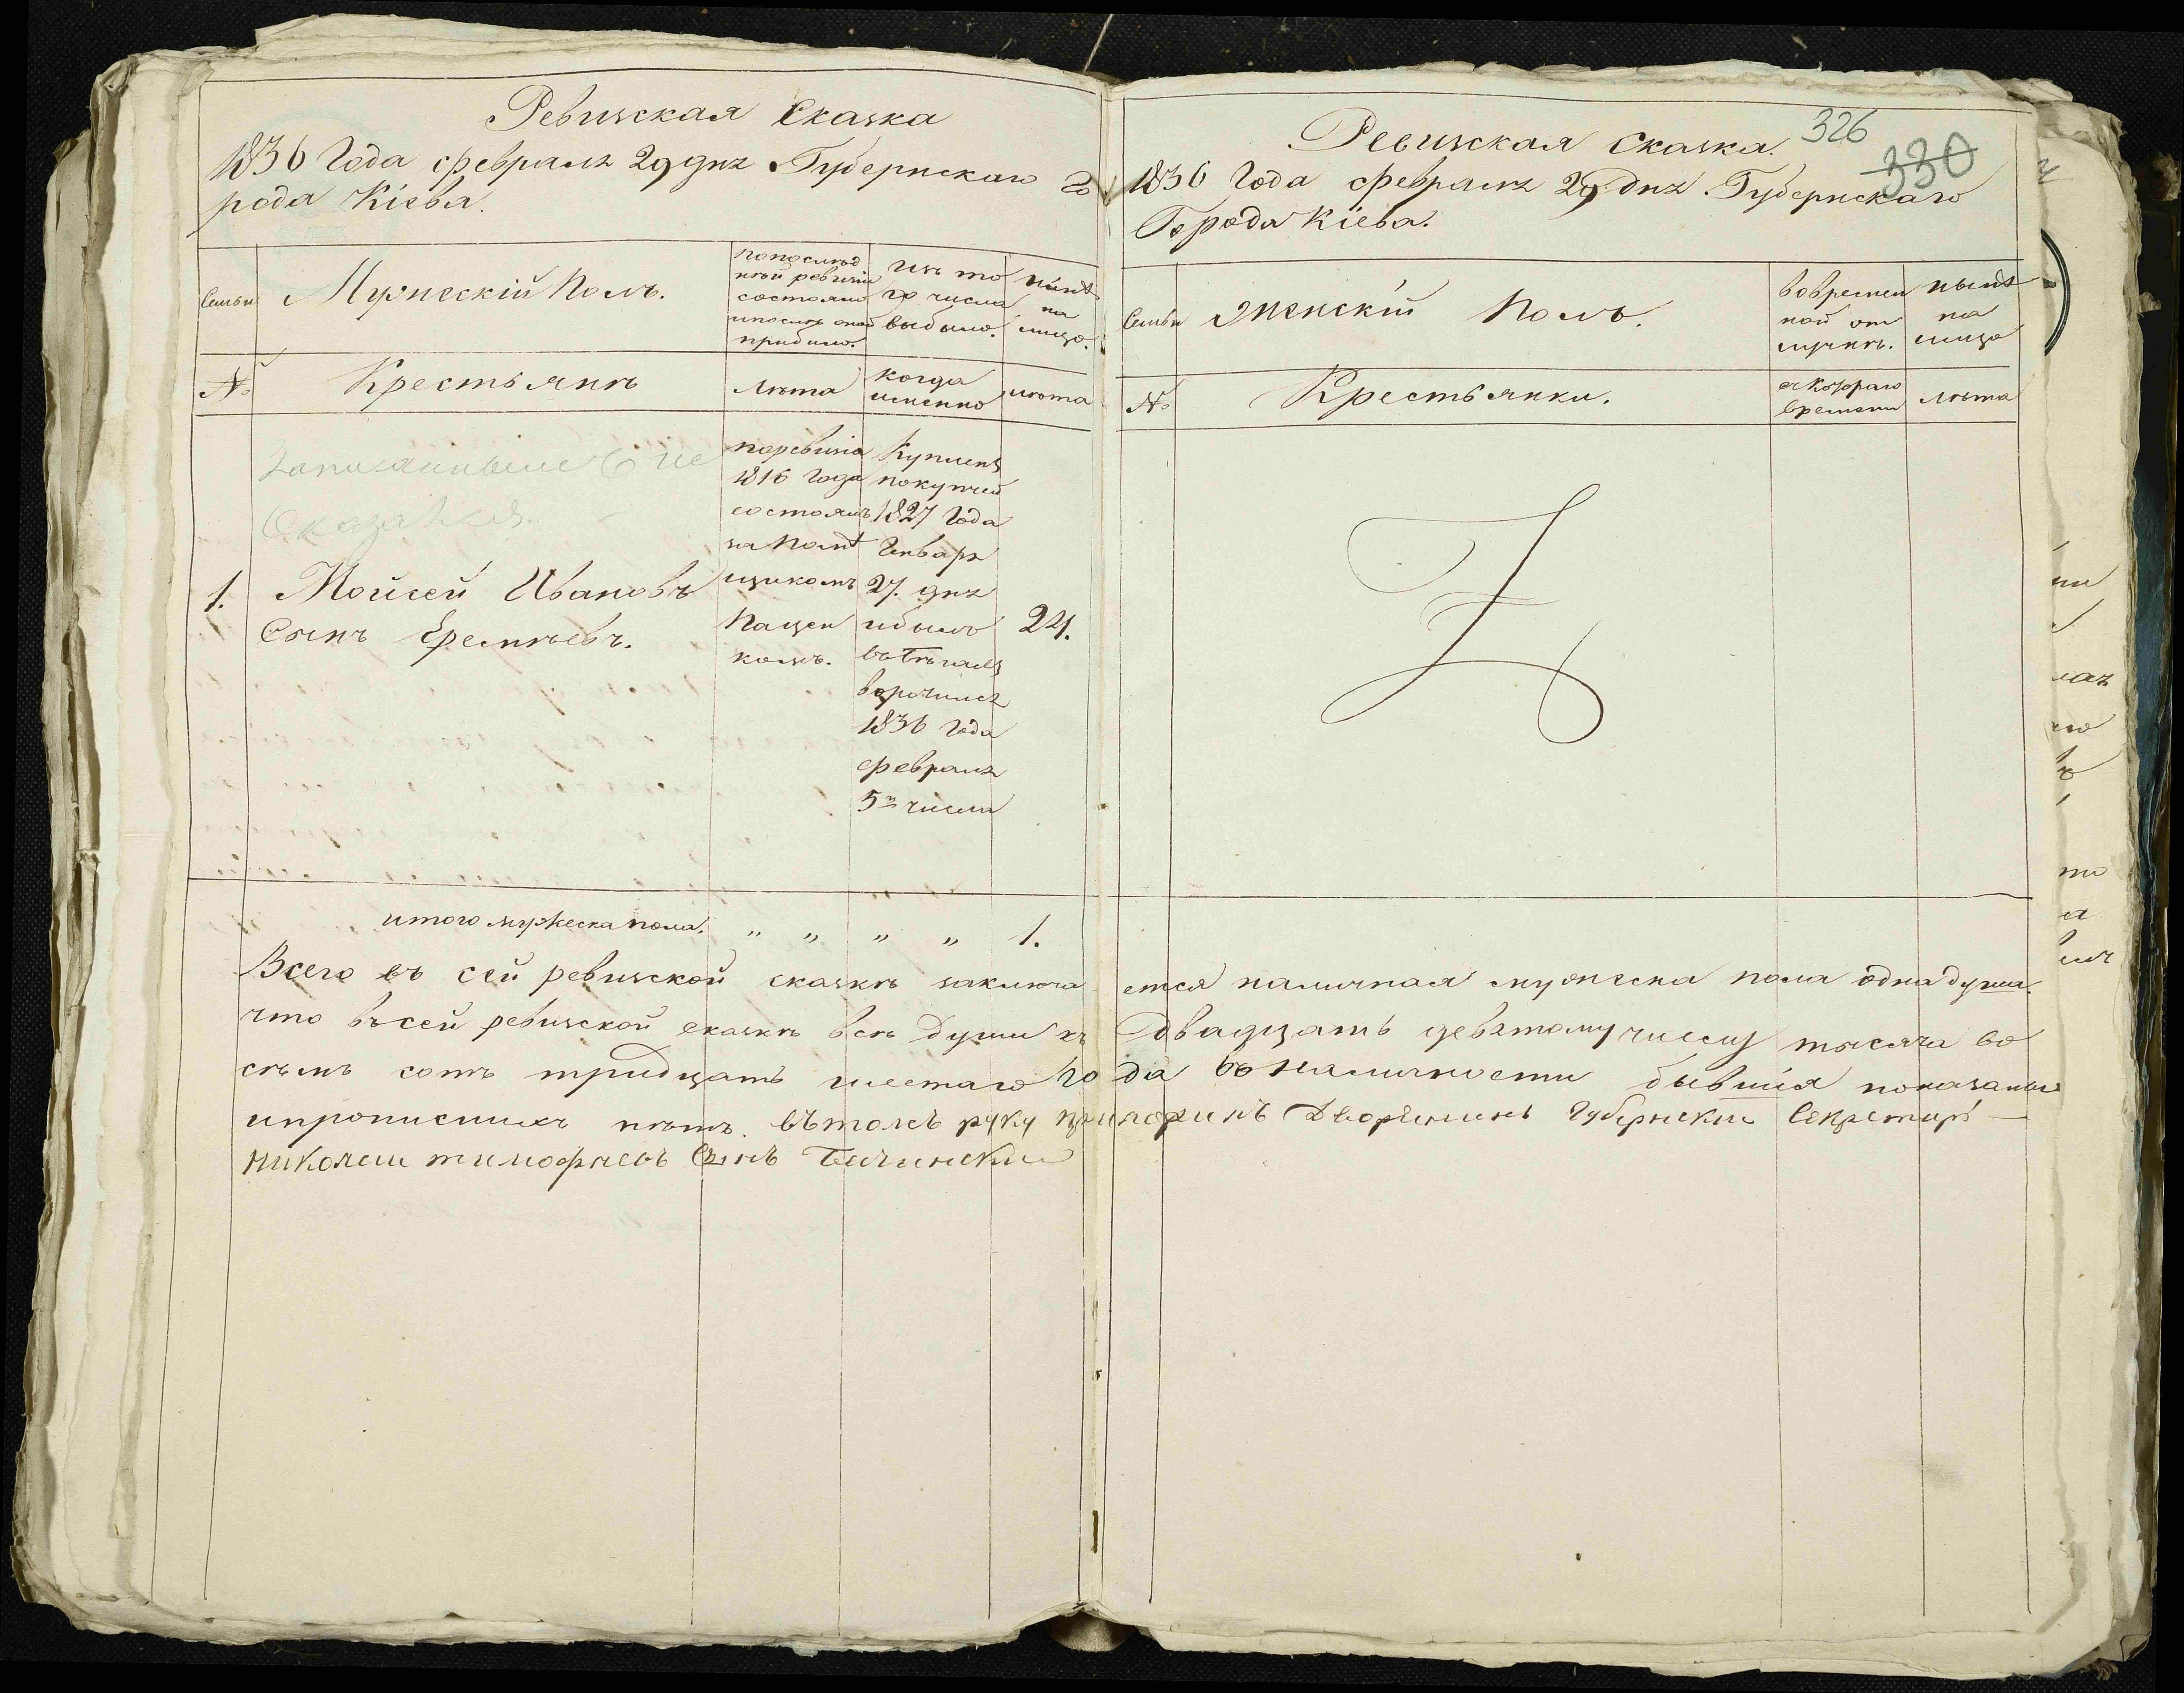 Ревизская Сказка
1836 Года февраля 29 дня Губернскаго го
рода Кіева.
Семьи
Мужескій Полъ.
попослѣд
нѣй ревизіи
состояло
ипослѣ оной
прибыло.
Изъ то
го числа
выбыло.
нынѣ
на
лицо.
№
Крестьянѣ
лѣта
когда
именно
лѣта
Записанныме
Сказать
1. Мойсей Ивановъ
Сынъ Еремѣевъ.
поревизіи
1816 года
состоялъ
за Помѣ
щикомъ
Пащен
комъ.
Купленъ
покупчей
1827 Года
Генваря
27. дня
ибылъ
вбѣгахъ
ворочился
1836 Года
февраля
5го числа
24.
итого мужеска пола. " " " " 1.
Ревизская Сказка. 326
330
1836 Года февраля 29 дня Губернскаго
Города Кіева.
Семьи
женскій Полъ.
вовремен
ной от
лучкѣ.
нынѣ
на
лицо
№
Крестьянки.
скотораго
времени
лѣта
Всего въ сей ревизской сказкѣ заключа ется наличная мужеска пола одна душа.
что въсей ревизской сказкѣ всѣ души къ Двадцать девятому числу тысяча во
сѣмъ сотъ тридцать шестаго го да во Наличности бывшія показаны
ипрописныхъ нѣтъ. вътомъ руку приложилъ Дворянинъ Губернскии Секретарь
Николаи тимофѣевъ Сынъ